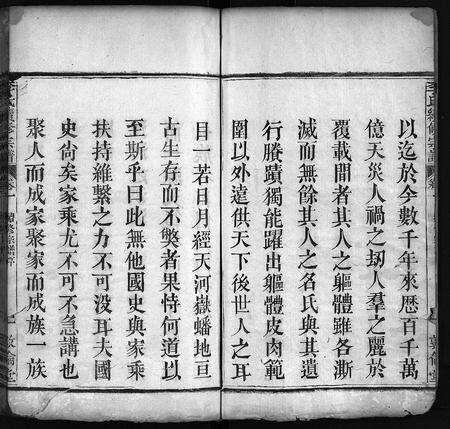 以迄於今數千年來歷百千萬
億天災人禍之刼人羣之麗於
覆載間者其人之軀體雖各澌
滅而無餘其人之名氏與其遺
行賸蹟獨能躍出軀體皮肉範
圍以外遠供天下後世人之耳
目一若日月經天河嶽蟠地亘
古生存而不獘者果恃何道以
至斯乎曰此無他國史與家乘
扶持維繫之力不可沒耳夫國
史尙矣家乘尤不可不急講也
聚人而成家聚家而成族一族